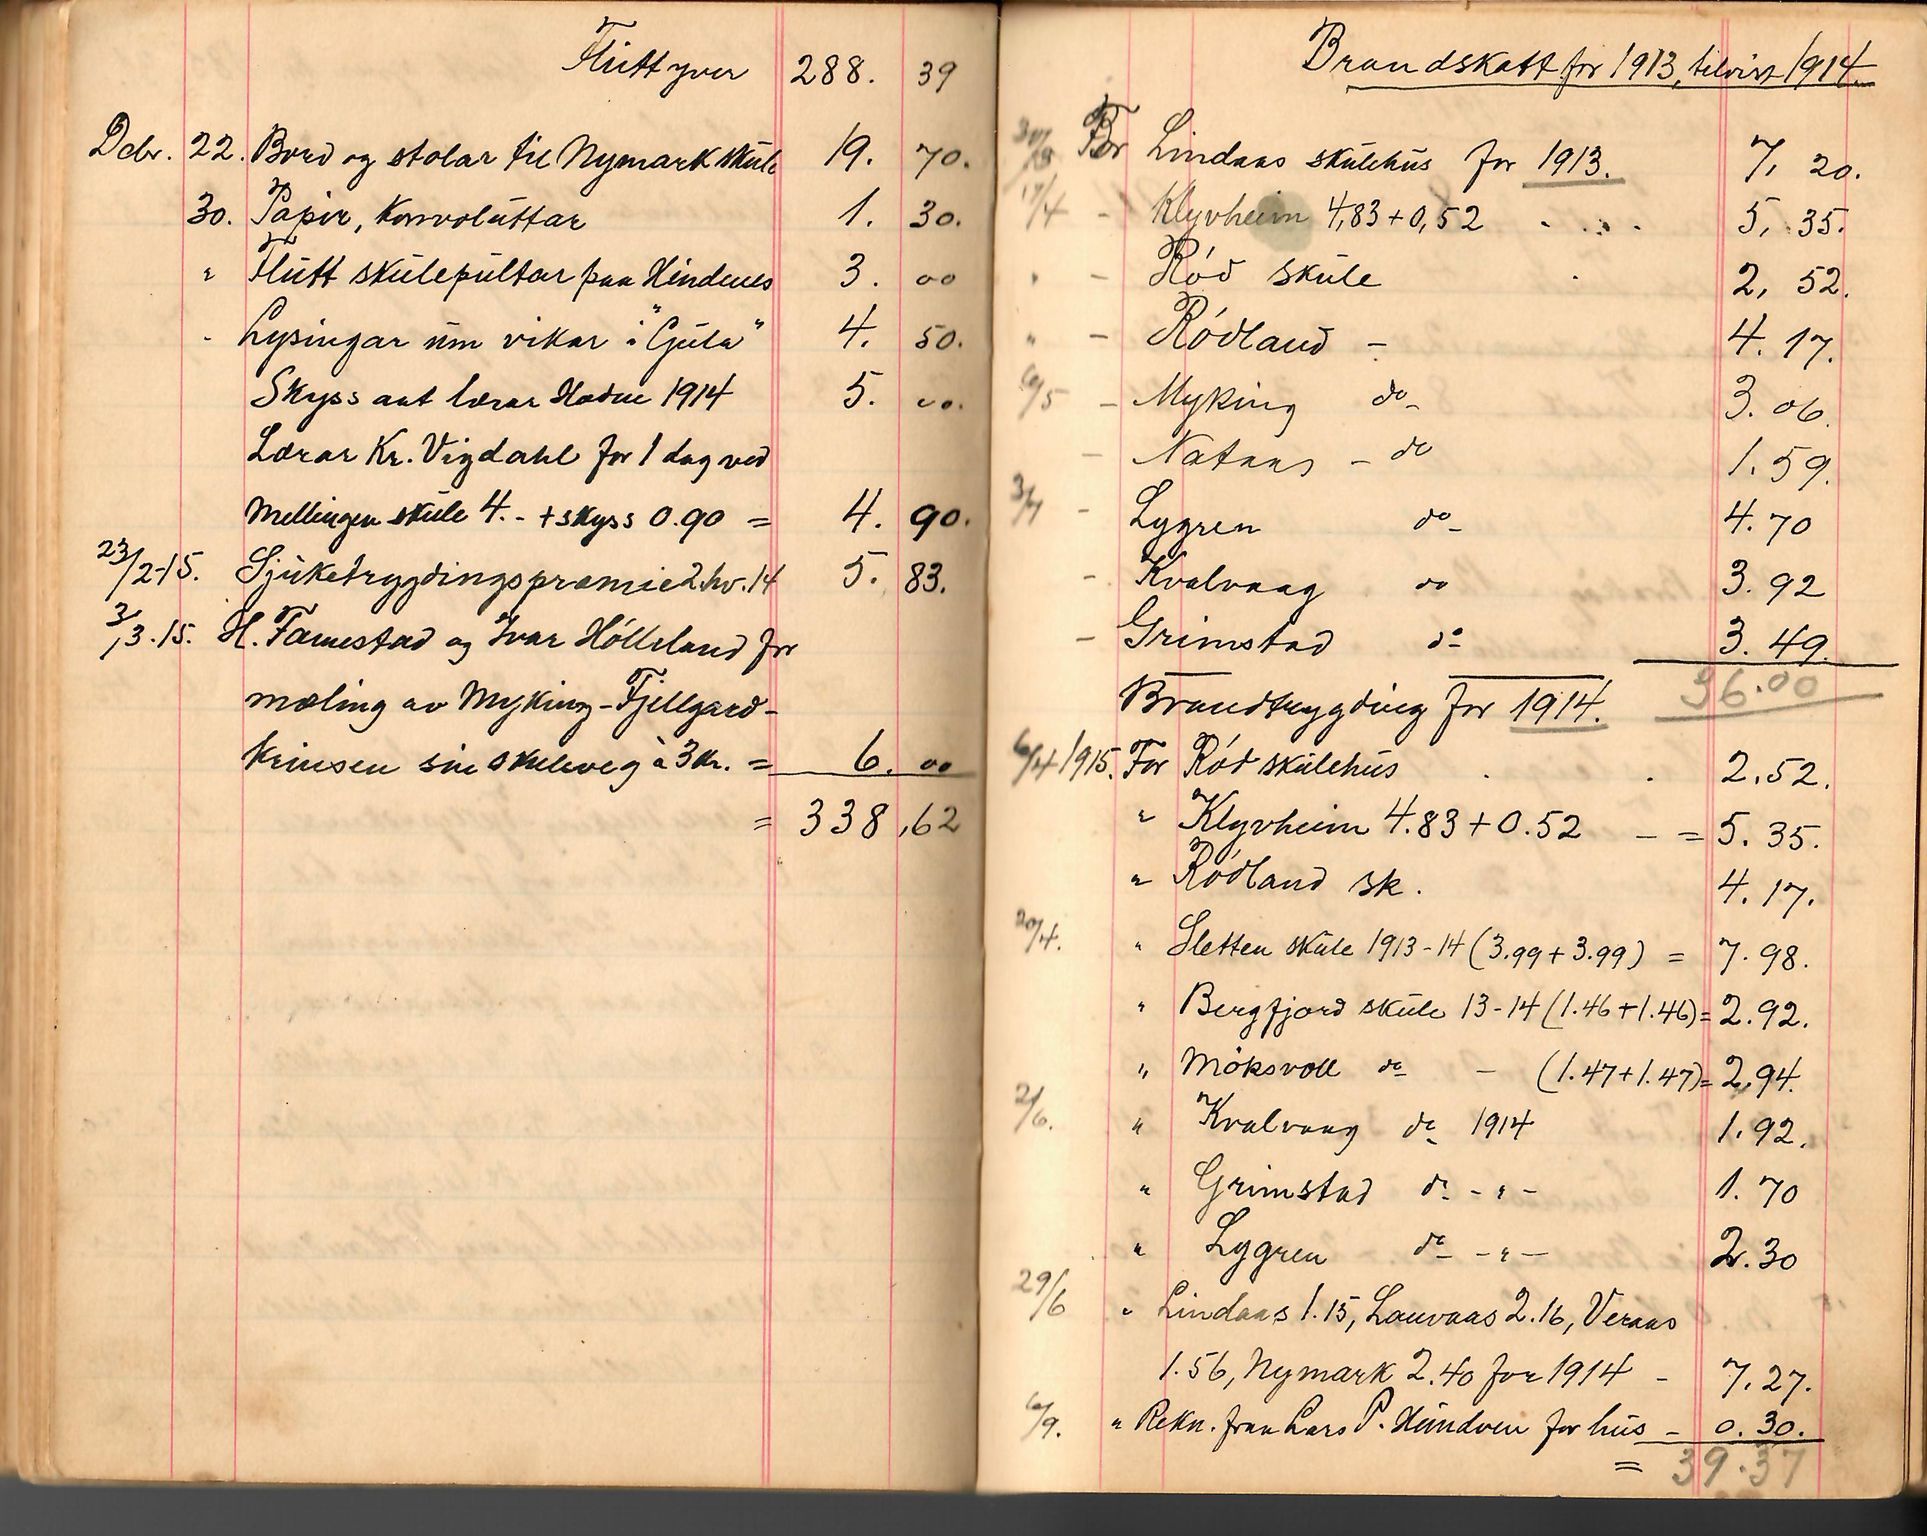 Flutt yver 288. 39
Dcbr. 22. Bord og stolar til Nymark skule 19. 70.
30. Papir, konvoluttar 1. 30.
" Flutt skulepultar paa Hindenes 3. 00
- Lysingar um vikar i "Gula" 4. 50.
Skyss aat lærar Hodne 1914 5. 00.
Lærar Kr. Vigdahl for 1 dag ved
Mellingen skule 4.- + skyss 0.90 = 4. 90.
23/2-15. Sjuketrygdingspræmie 2.hv. 14 5. 83.
3/3.15. H. Fammestad og Ivar Hölleland for
mæling av Myking-Fjellgard-
krinsen sin skuleveg à 3 Kr. = 6. 00
= 338,62
Brandskatt for 1913, tilvist 1914.
For Lindaas skulehus for 1913. 7, 20.
17/4 - Klyvheim 4,83 + 0,52 5, 35.
" - Röd skule 2, 52.
" - Rödland - 4. 17.
6/5 - Myking do 3. 06.
- Nataas - do 1. 59.
3/7 - Lygren do 4. 70
- Kvalvaag do 3. 92
- Grimstad do 3. 49.
36.00
Brandtrygding for 1914.
6/4 1915. For Röd skulehus 2.52.
" Klyvheim 4.83 + 0.52 - = 5. 35.
" Rödland sk. 4. 17.
20/4. " Sletten skule 1913-14 (3.99 + 3.99) = 7. 98.
" Bergfjord skule 13-14 (1.46 + 1.46) = 2.92.
" Möksvoll do - (1.47 + 1.47) = 2,94.
2/6. " Kvalvaag do 1914 1. 92.
" Grimstad do - " - 1. 70
" Lygren do - " - 2. 30
29/6 " Lindaas 1.15, Lauvaas 2.16, Veraas
1.56, Nymark 2.40 for 1914 - 7. 27.
6/9. " Rekn. fraa Lars P. Hundven for hus - 0. 30.
= 39.37